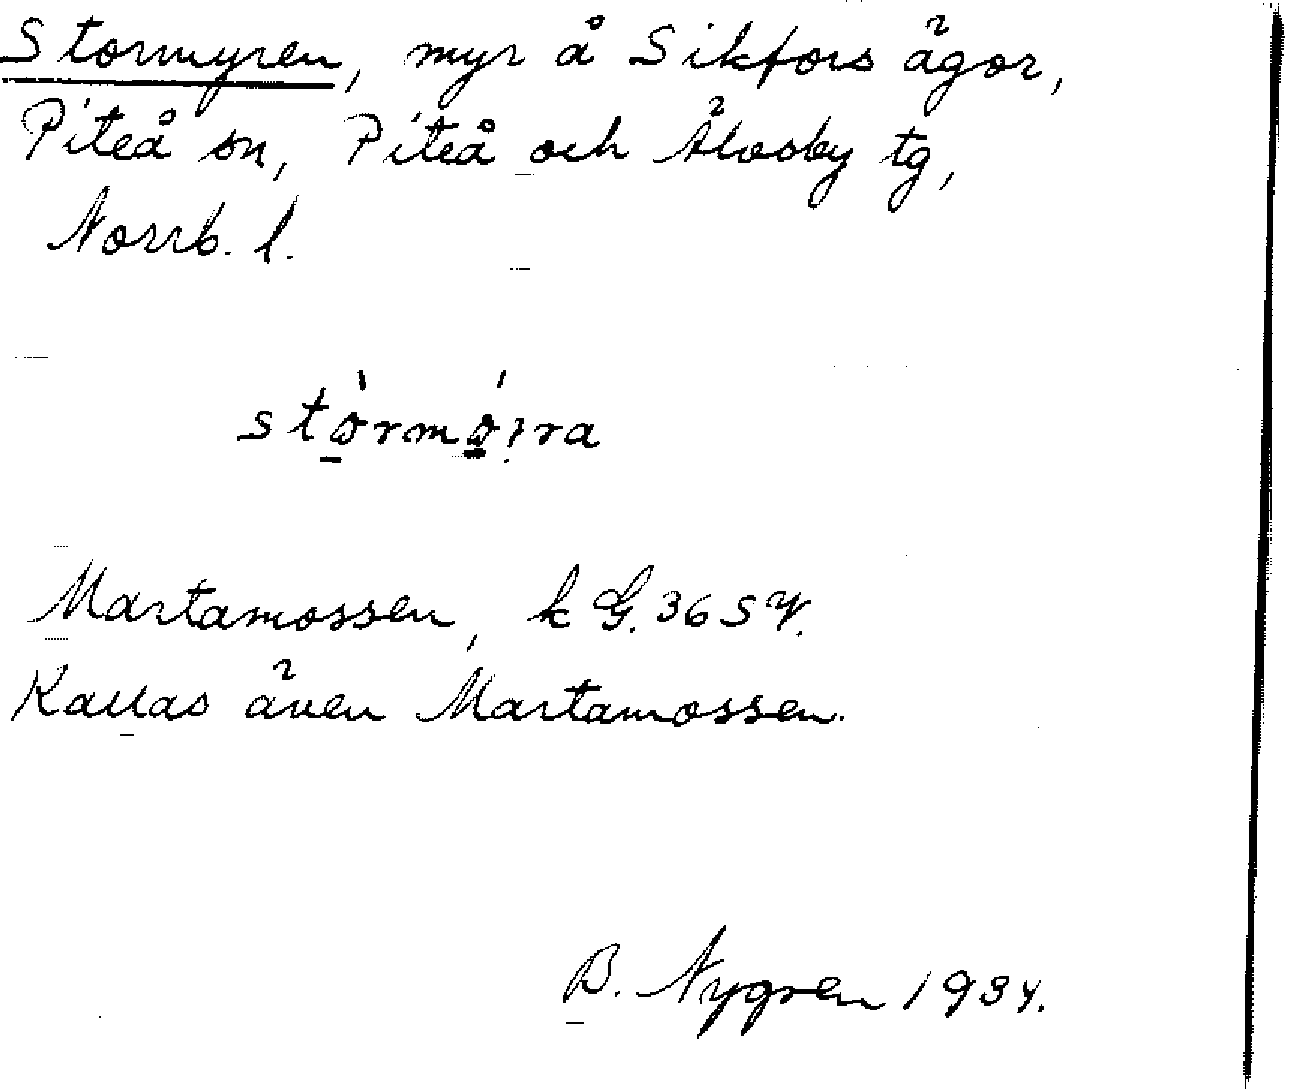 Stormyren, myr å Sikfors ägor,
Piteå sn, Piteå och Älvsby tg,
Norrb. l.
Martamossen, k G. 36 SV.
Kallas även Martamossen.
B. Nygren 1934.